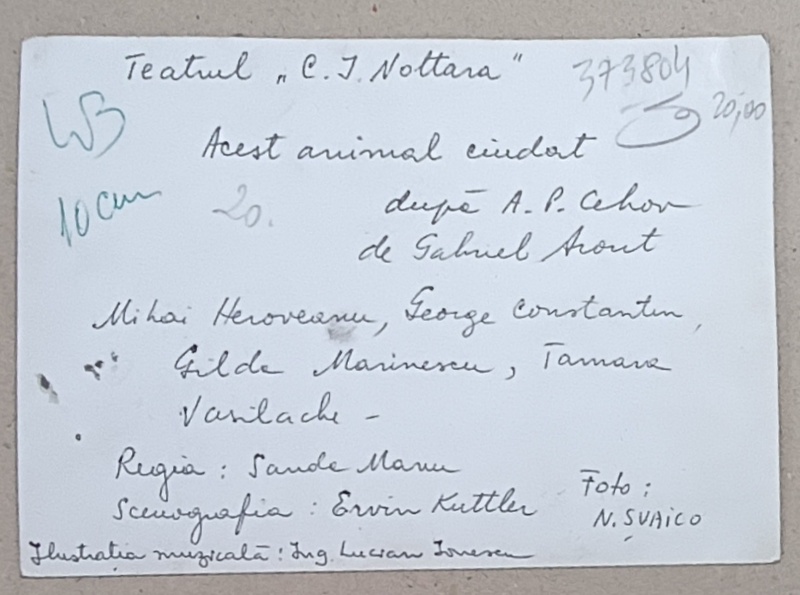 Teatrul „C. I. Nottara"
373804
20,00
WB
Acest animal ciudat
10 cm
20.
după A. P. Cehov
de Gabriel Arout
Mihai Heroveanu, George Constantin,
Gilda Marinescu, Tamara
Vasilache -
Regia : Sanda Manu
Scenografia : Ervin Kuttler
Foto :
N. ȘUAICO
Ilustrația muzicală : Ing. Lucian Ionescu